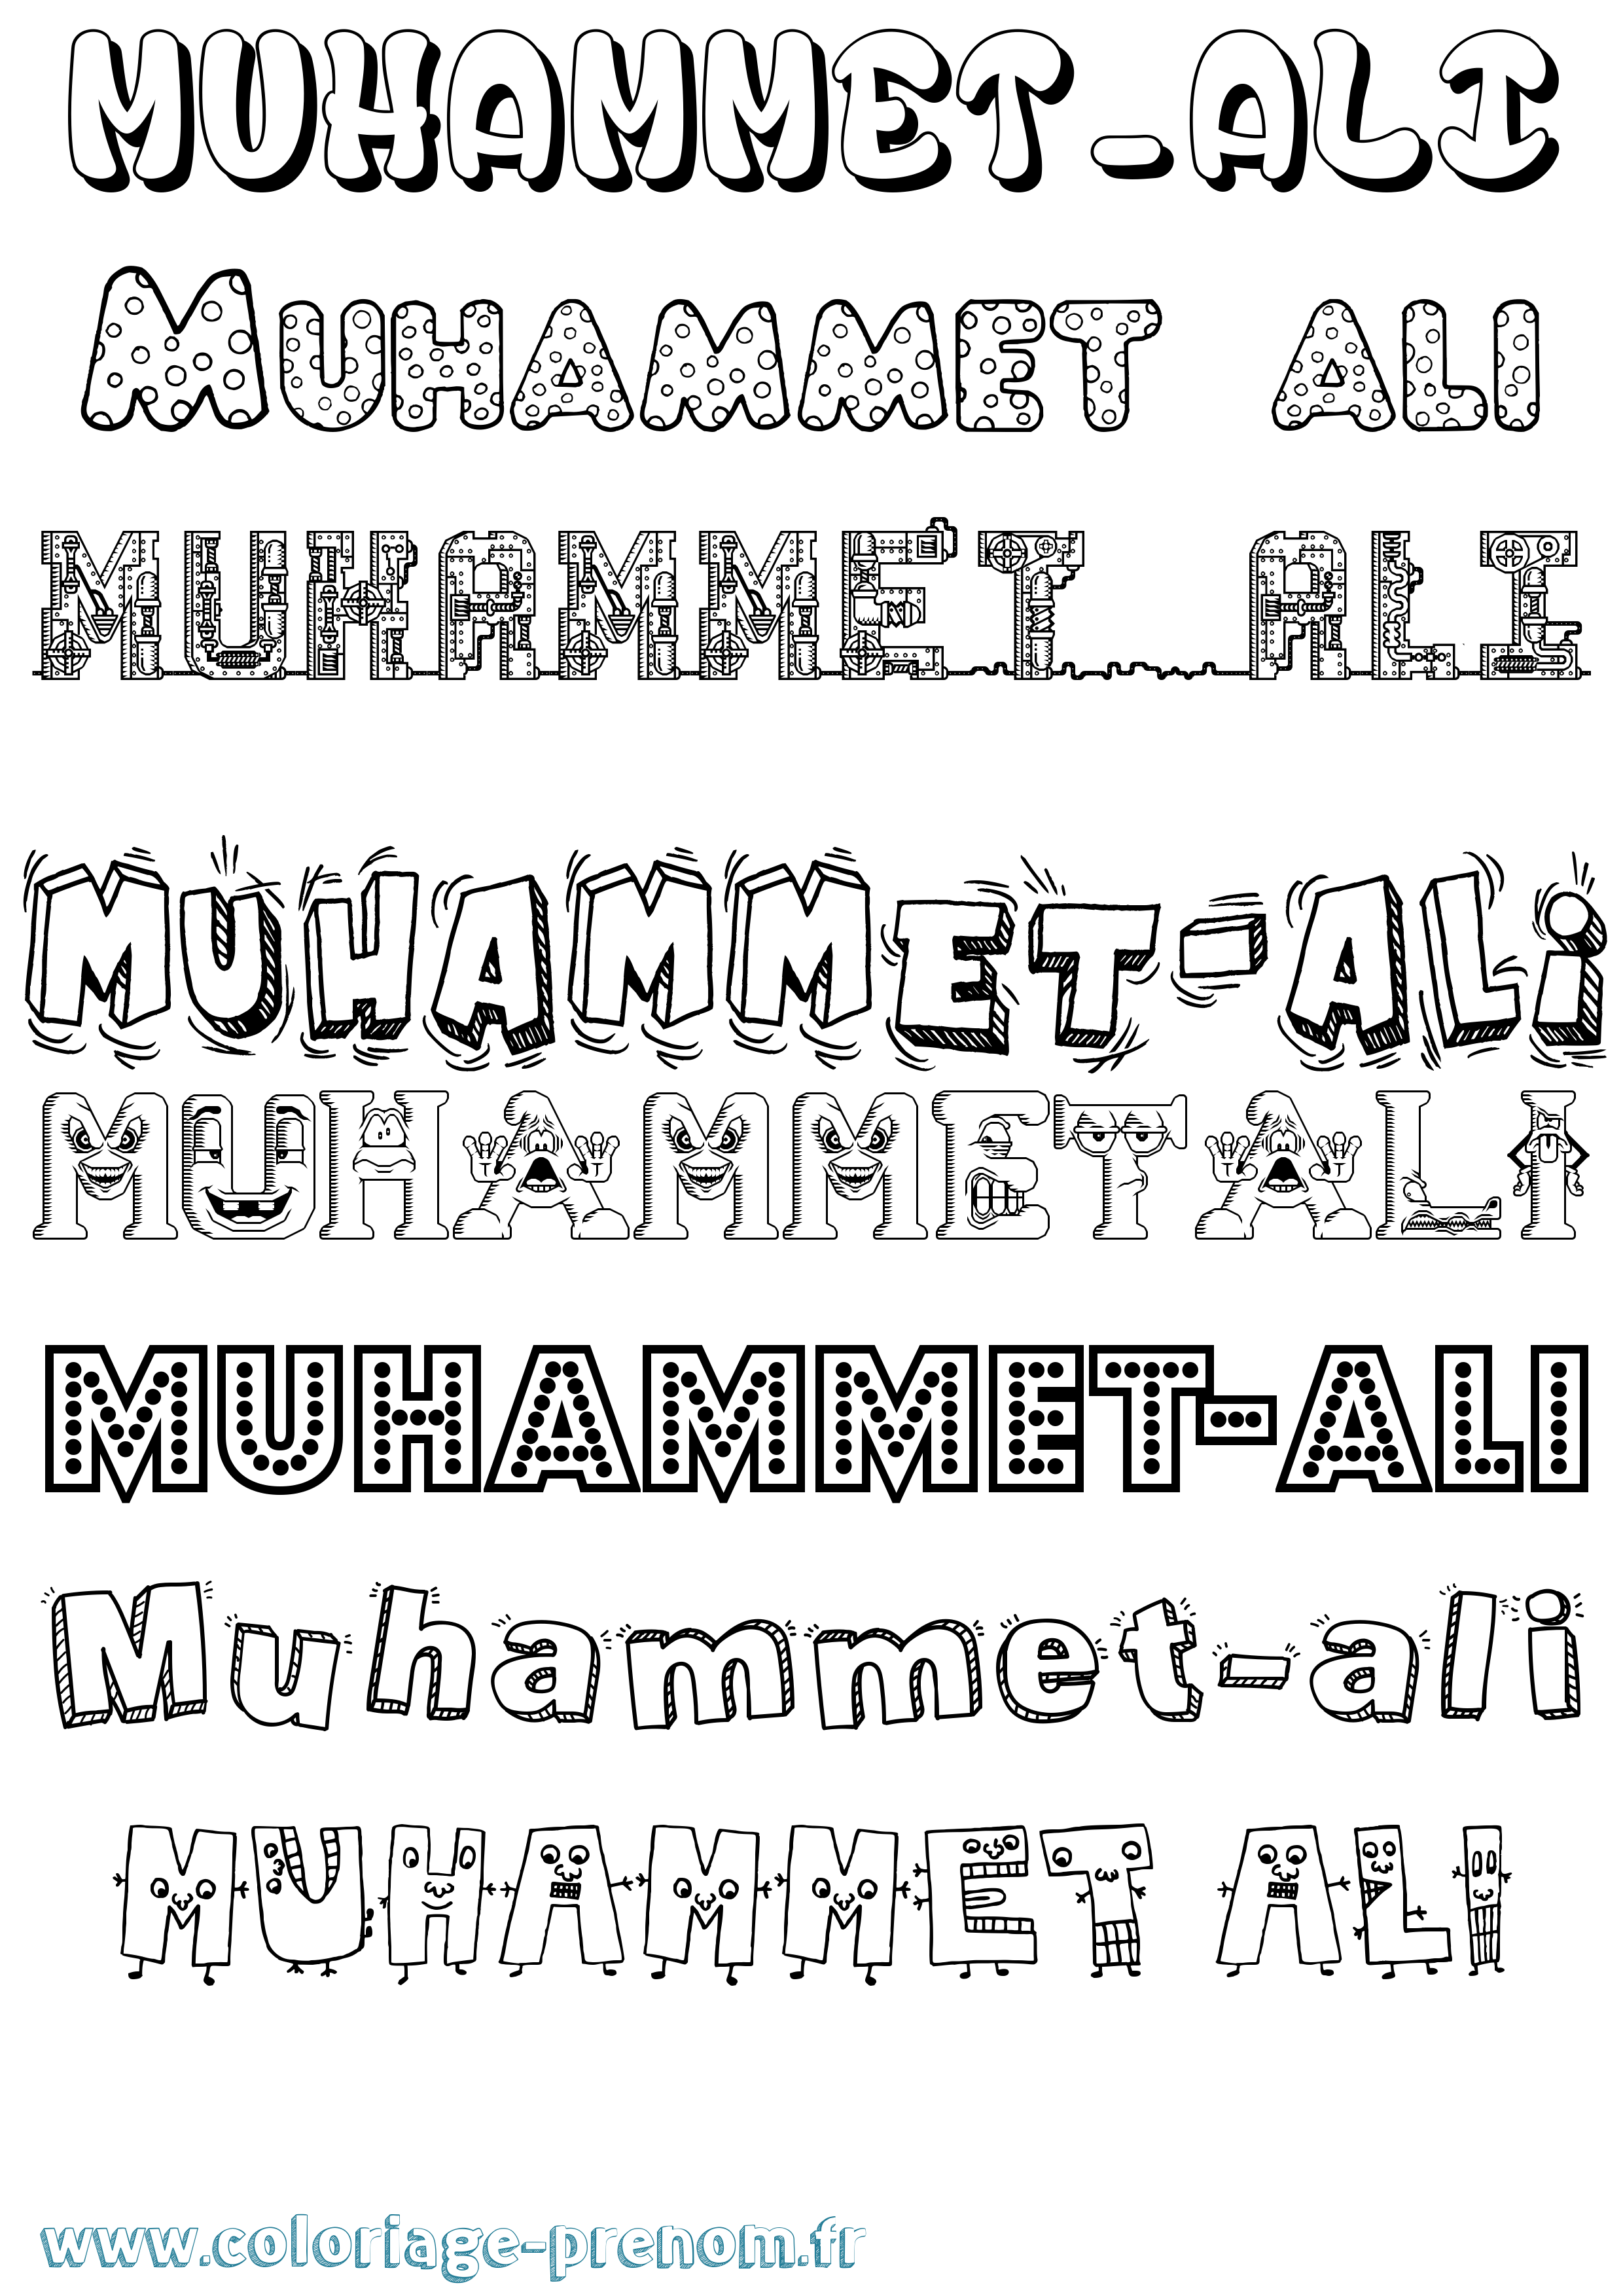 MUHAMMET-ALI
MUHAMMET ALI
MUHAMMET ALI
MUHAMMET-ALi
MUHAMMETALI
MUHAMMET-ALI
Muhammet-ali
MUHAMMET ALI
www.coloriage-prenom.fr